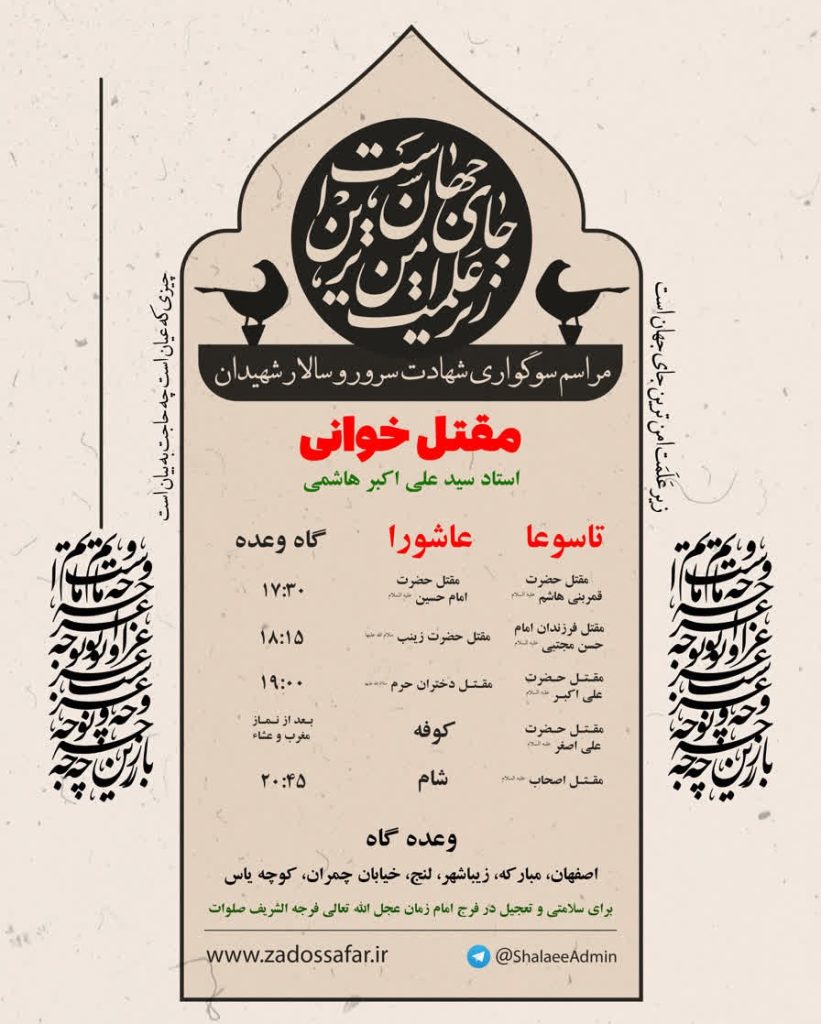 زیر علمت امن ترین جای جهان است
مراسم سوگواری شهادت سرور و سالار شهیدان
مقتل خوانی
استاد سید علی اکبر هاشمی
تاسوعا عاشورا گاه وعده
مقتل حضرت قمربنی هاشم علیه السلام مقتل حضرت امام حسین علیه السلام ۱۷:۳۰
مقتل فرزندان امام حسن مجتبی علیه السلام مقتل حضرت زینب سلام الله علیها ۱۸:۱۵
مقتل حضرت علی اکبر علیه السلام مقتل دختران حرم سلام الله علیها ۱۹:۰۰
مقتل حضرت علی اصغر علیه السلام کوفه بعد از نماز مغرب و عشاء
مقتل اصحاب علیه السلام شام ۲۰:۴۵
وعده گاه
اصفهان، مبارکه، زیباشهر، لنج، خیابان چمران، کوچه یاس
برای سلامتی و تعجیل در فرج امام زمان عجل الله تعالی فرجه الشریف صلوات
www.zadossafar.ir @ShalaeeAdmin
زیر عَلَمَت امن ترین جای جهان است
چیزی که عیان است چه حاجت به بیان است